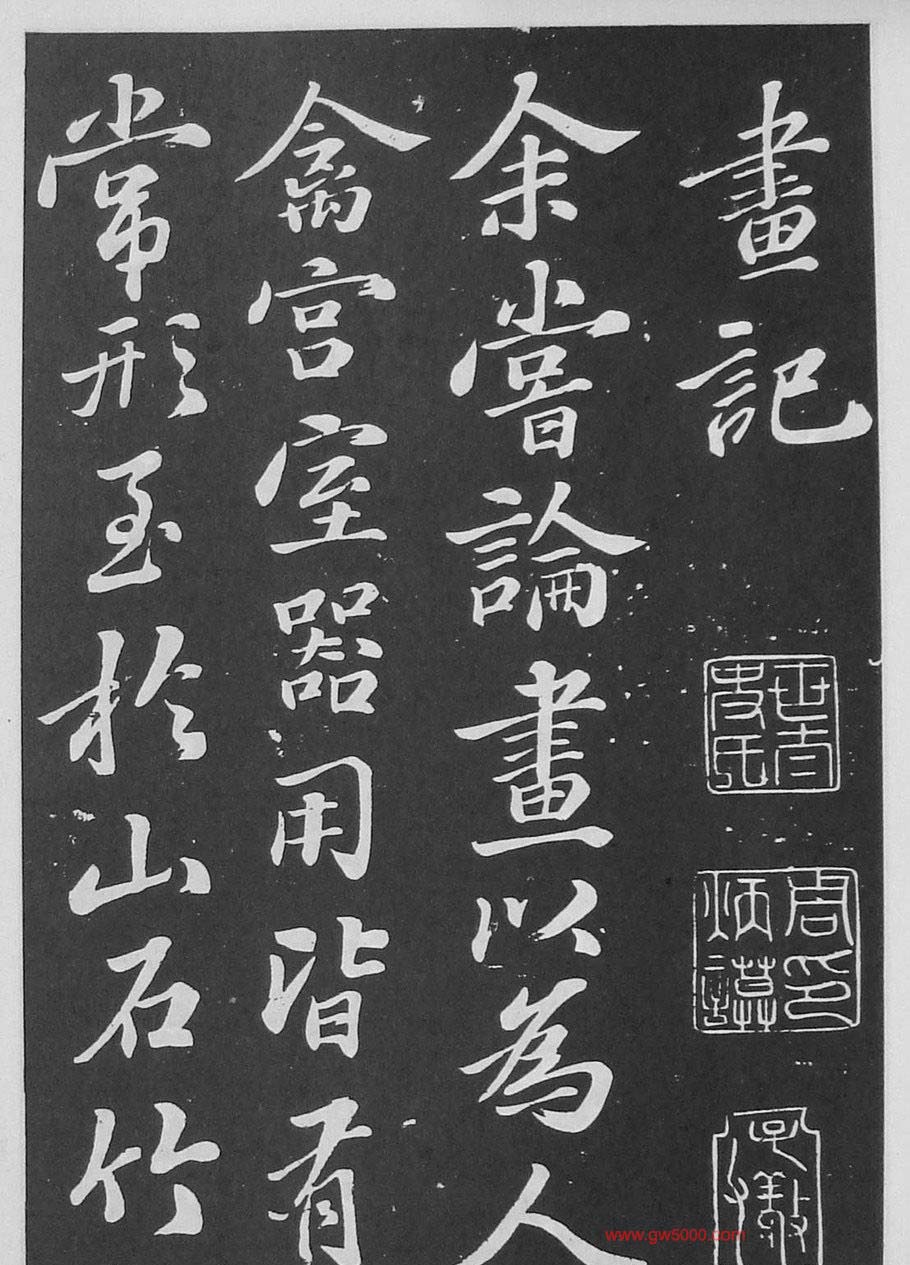 畫記
周印
炳謨
余嘗論畫以為人
禽宮室器用皆有
常形至於山石竹
www.gw5000.com